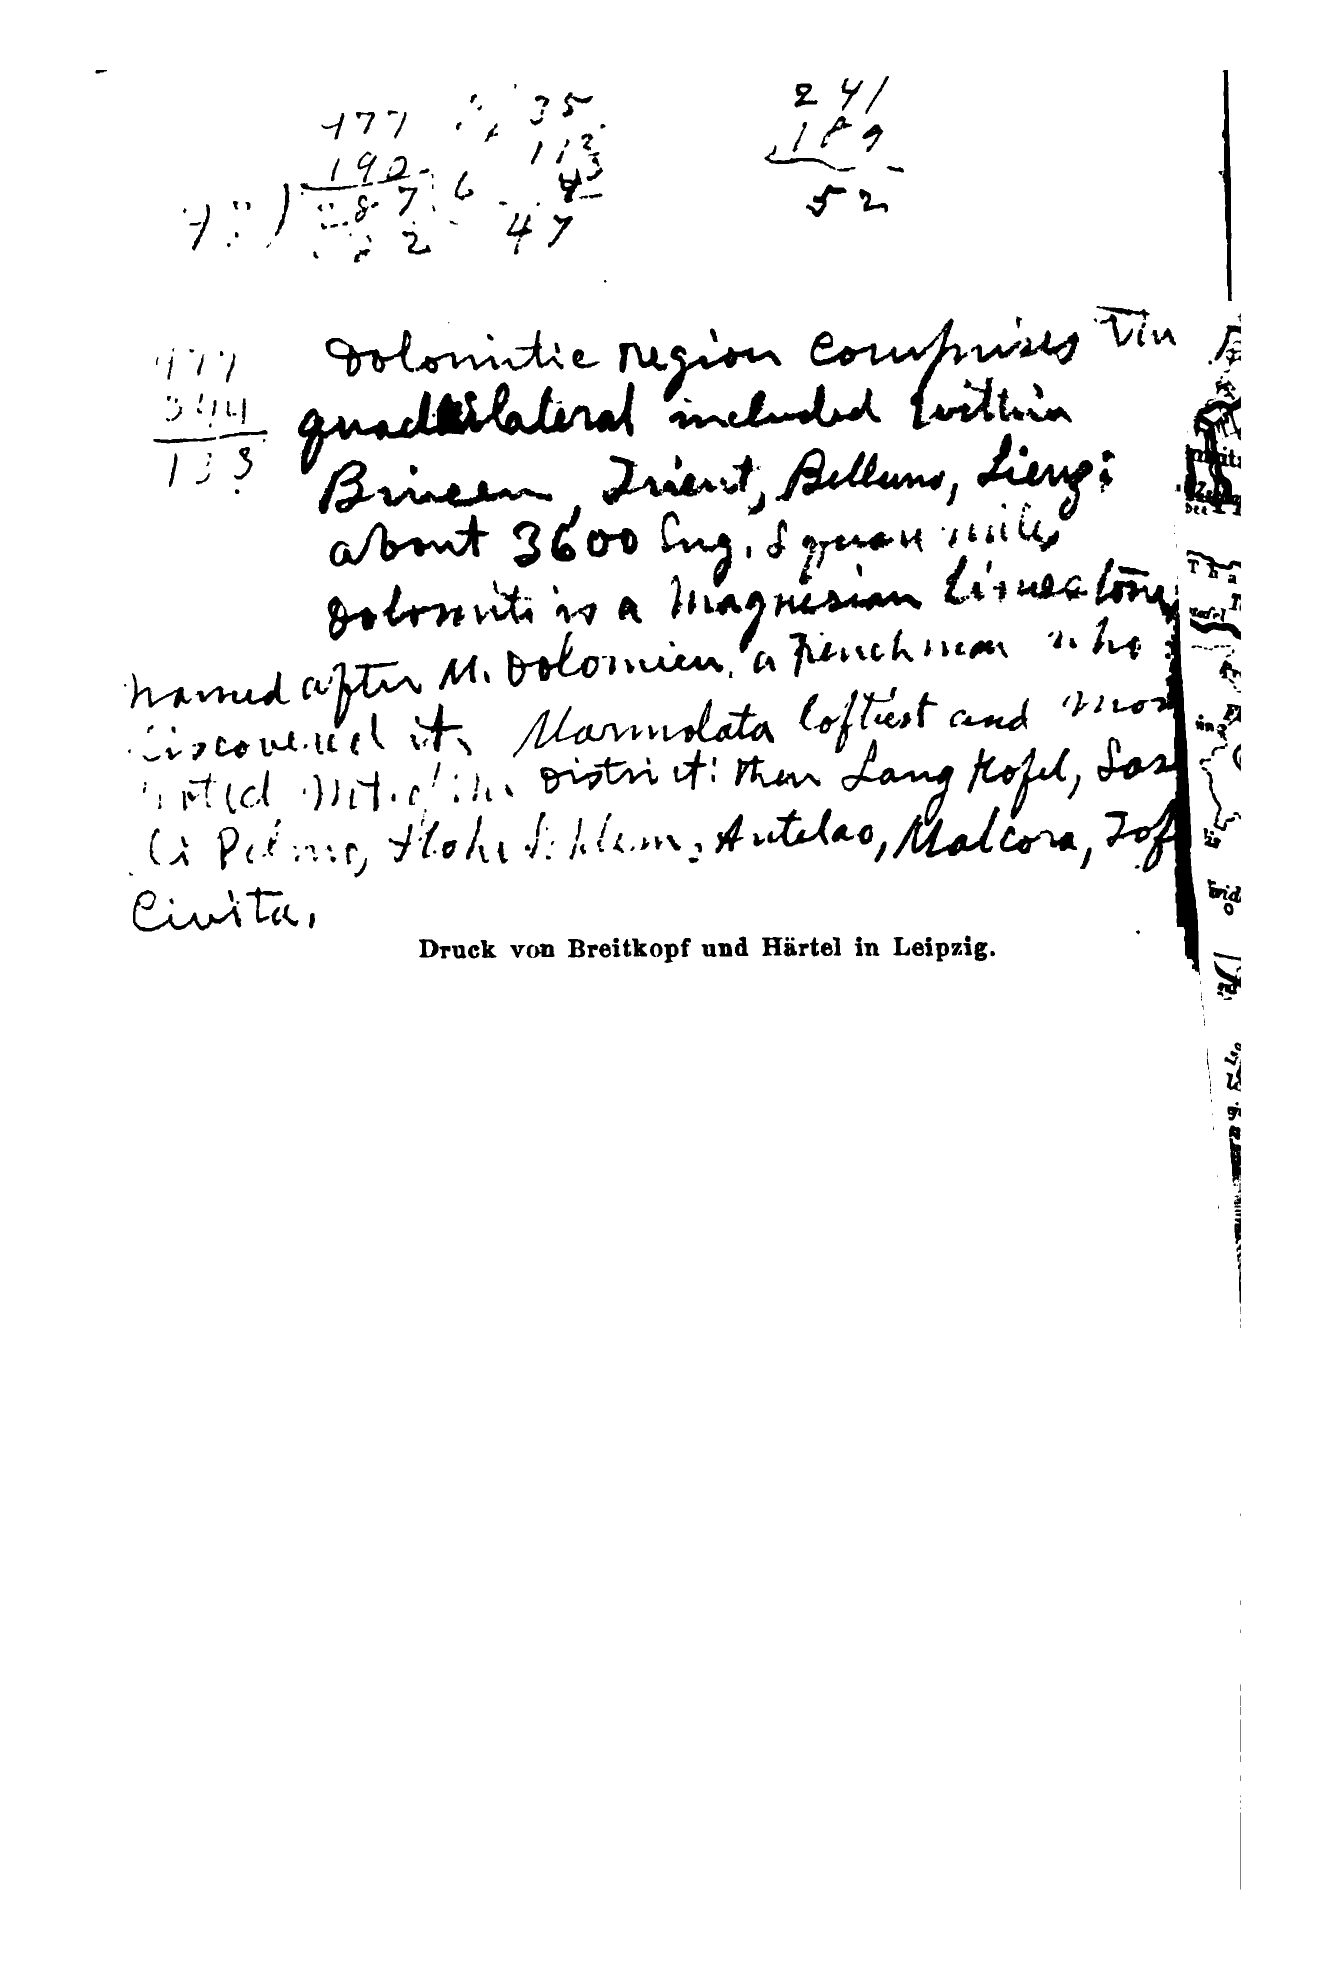 477 35
190 11 2/3
87 6 4
2 47
241
189
52
477
344
133
Dolomitic region comprises
quadrilateral included within
Brixen, Trient, Belluno, Lienz:
about 3600 Eng. square miles
Dolomite is a Magnesian Limestone,
named after M. Dolomieu, a Frenchman who
discovered it. Marmolata loftiest and mos
noted district: then Lang Kofel, Sas
Pelmo, Hohe Schlern, Antelao, Malcora, Tof
Civita.
Druck von Breitkopf und Härtel in Leipzig.